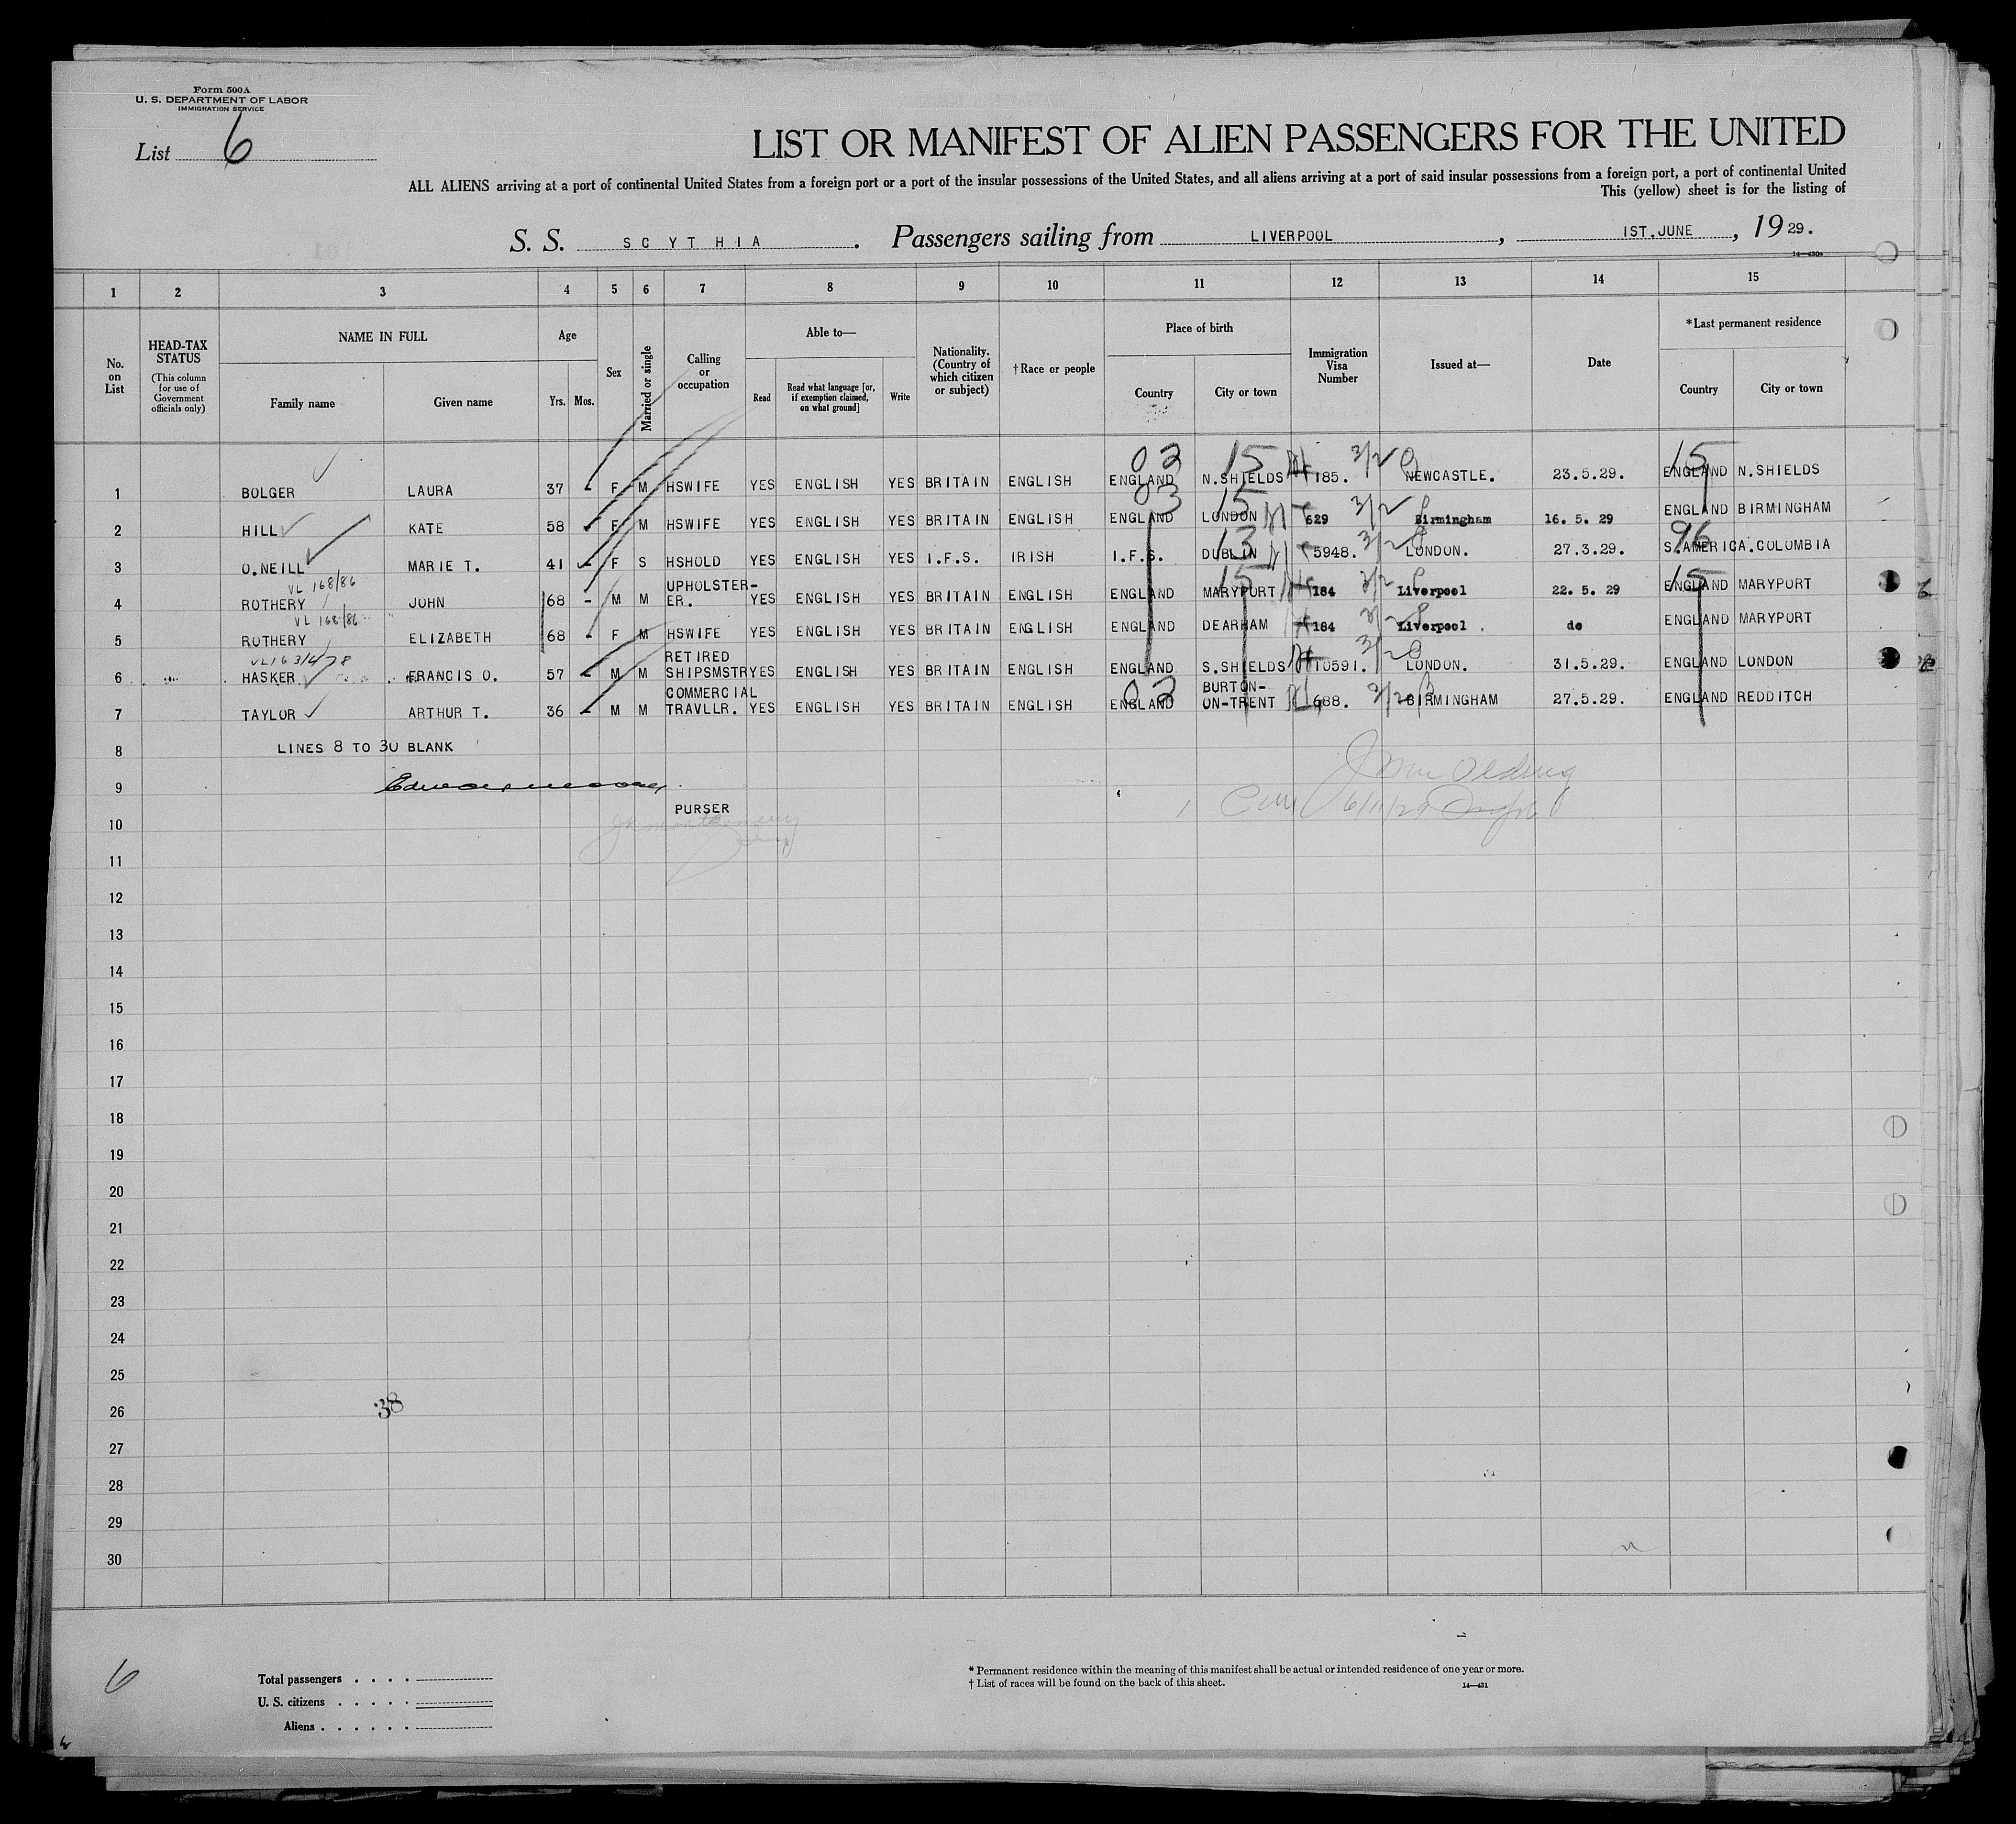 Form 500A
U. S. DEPARTMENT OF LABOR
IMMIGRATION SERVICE
List 6
LIST OR MANIFEST OF ALIEN PASSENGERS FOR THE UNITED
ALL ALIENS arriving at a port of continental United States from a foreign port or a port of the insular possessions of the United States, and all aliens arriving at a port of said insular possessions from a foreign port, a port of continental United
This (yellow) sheet is for the listing of
S. S. SCYTHIA. Passengers sailing from LIVERPOOL, 1ST.JUNE, 1929.
14—430a
1 2 3 4 5 6 7 8 9 10 11 12 13 14 15
No. on List
HEAD-TAX STATUS (This column for use of Government officials only)
NAME IN FULL
Family name Given name
Age
Yrs. Mos.
Sex
Married or single
Calling or occupation
Able to—
Read Read what language [or, if exemption claimed, on what ground] Write
Nationality. (Country of which citizen or subject)
†Race or people
Place of birth
Country City or town
Immigration Visa Number
Issued at—
Date
*Last permanent residence
Country City or town
03 15 3/2 15
1 BOLGER LAURA 37 - F M HSWIFE YES ENGLISH YES BRITAIN ENGLISH ENGLAND N.SHIELDS 185. NEWCASTLE. 23.5.29. ENGLAND N.SHIELDS
03 15 3/2
2 HILL KATE 58 - F M HSWIFE YES ENGLISH YES BRITAIN ENGLISH ENGLAND LONDON 629 Birmingham 16. 5. 29 ENGLAND BIRMINGHAM
13 3/2 96
3 O.NEILL MARIE T. 41 - F S HSHOLD YES ENGLISH YES I.F.S. IRISH I.F.S. DUBLIN 5948. LONDON. 27.3.29. S.AMERICA.COLOMBIA
VL 168/86 15 3/2 15
4 ROTHERY JOHN 68 - M M UPHOLSTER-ER. YES ENGLISH YES BRITAIN ENGLISH ENGLAND MARYPORT 184 Liverpool 22. 5. 29 ENGLAND MARYPORT
VL 168/86
5 ROTHERY ELIZABETH 68 - F M HSWIFE YES ENGLISH YES BRITAIN ENGLISH ENGLAND DEARHAM 184 Liverpool. do ENGLAND MARYPORT
VL163/478 3/2
6 HASKER FRANCIS O. 57 - M M RETIRED SHIPSMSTR YES ENGLISH YES BRITAIN ENGLISH ENGLAND S.SHIELDS 10591. LONDON. 31.5.29. ENGLAND LONDON
03 3/2
7 TAYLOR ARTHUR T. 36 - M M COMMERCIAL TRAVLLR. YES ENGLISH YES BRITAIN ENGLISH ENGLAND BURTON-ON-TRENT 688. BIRMINGHAM 27.5.29. ENGLAND REDDITCH
8 LINES 8 TO 30 BLANK
9
PURSER
10
11
12
13
14
15
16
17
18
19
20
21
22
23
24
25
26 38
27
28
29
30
6
Total passengers . . . .
U. S. citizens . . . . .
Aliens . . . . . .
* Permanent residence within the meaning of this manifest shall be actual or intended residence of one year or more.
† List of races will be found on the back of this sheet.
14—431